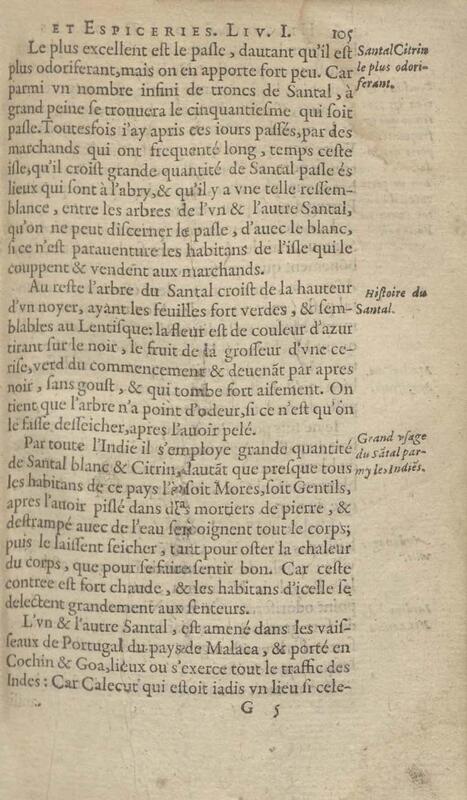 ET ESPICERIES. LIV. I. 105
Le plus excellent eſt le paſle, dautant qu'il eſt
plus odoriferant, mais on en apporte fort peu. Car
parmi vn nombre infini de troncs de Santal, à
grand peine ſe trouuera le cinquantieſme qui ſoit
paſle. Toutesfois i'ay apris ces iours paſſés, par des
marchands qui ont frequenté long, temps ceſte
iſle, qu'il croiſt grande quantité de Santal paſle és
lieux qui ſont à l'abry, & qu'il y a vne telle reſſem-
blance, entre les arbres de l'vn & l'autre Santal,
qu'on ne peut diſcerner le paſle, d'auec le blanc,
ſi ce n'eſt parauenture les habitans de l'iſle qui le
couppent & vendent aux marchands.
Santal Citrin
le plus odori-
ferant.
Au reſte l'arbre du Santal croiſt de la hauteur
d'vn noyer, ayant les feuilles fort verdes, & ſem-
blables au Lentiſque: la fleur eſt de couleur d'azur
tirant ſur le noir, le fruit de la groſſeur d'vne ce-
riſe, verd du commencement & deuenãt par apres
noir, ſans gouſt, & qui tombe fort aiſement. On
tient que l'arbre n'a point d'odeur, ſi ce n'eſt qu'on
le faſſe deſſeicher, apres l'auoir pelé.
Hiſtoire du
Santal.
Par toute l'Indie il s'employe grande quantité
de Santal blanc & Citrin, dautãt que preſque tous
les habitans de ce pays ſoit Mores, ſoit Gentils,
apres l'auoir piſlé dans mortiers de pierre, &
deſtrampé auec de l'eau s'en oignent tout le corps;
puis le laiſſent ſeicher, tant pour oſter la chaleur
du corps, que pour ſe faire ſentir bon. Car ceſte
contree eſt fort chaude, & les habitans d'icelle ſe
delectent grandement aux ſenteurs.
Grand vſage
du Sãtal par-
my les Indiẽs.
L'vn & l'autre Santal, eſt amené dans les vaiſ-
ſeaux de Portugal du pays de Malaca, & porté en
Cochin & Goa, lieux ou s'exerce tout le traffic des
Indes: Car Calecut qui eſtoit iadis vn lieu ſi cele-
G 5